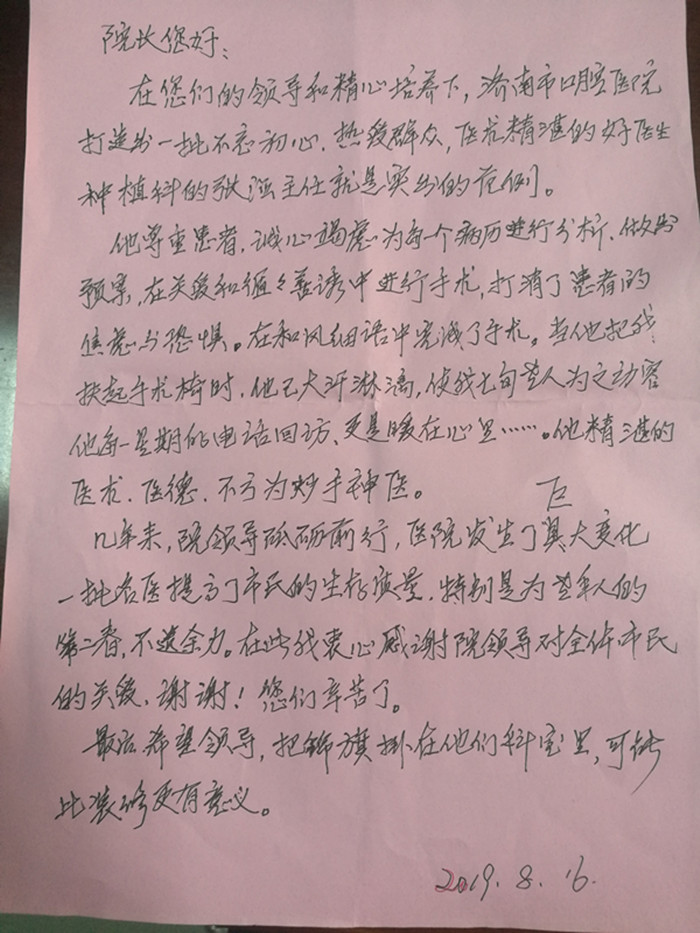 院长您好：
在您们的领导和精心培养下，济南市口腔医院
打造出一批不忘初心、热爱群众，医术精湛的好医生
种植科的张主任就是突出的范例。
他尊重患者，诚心竭虑为每一个病历进行分析、做出
预案，在关爱和循々善诱中进行手术，打消了患者的
焦虑与恐惧。在和风细语中完成了手术。当他把我
扶起手术椅时，他已大汗淋漓，使我七旬老人为之动容
他每一星期的电话回访，更是暖在心里……。他精湛的
医术、医德、不亏为妙手神医。
巨
几年来，院领导砥砺前行，医院发生了大变化
一批名医提高了市民的生存质量，特别是为老年人的
第二春，不遗余力。在此我衷心感谢院领导对全体市民
的关爱、谢谢！您们辛苦了。
最后希望领导，把锦旗掛在他们科室里，可能
比装修更有意义。
2019.8.16.